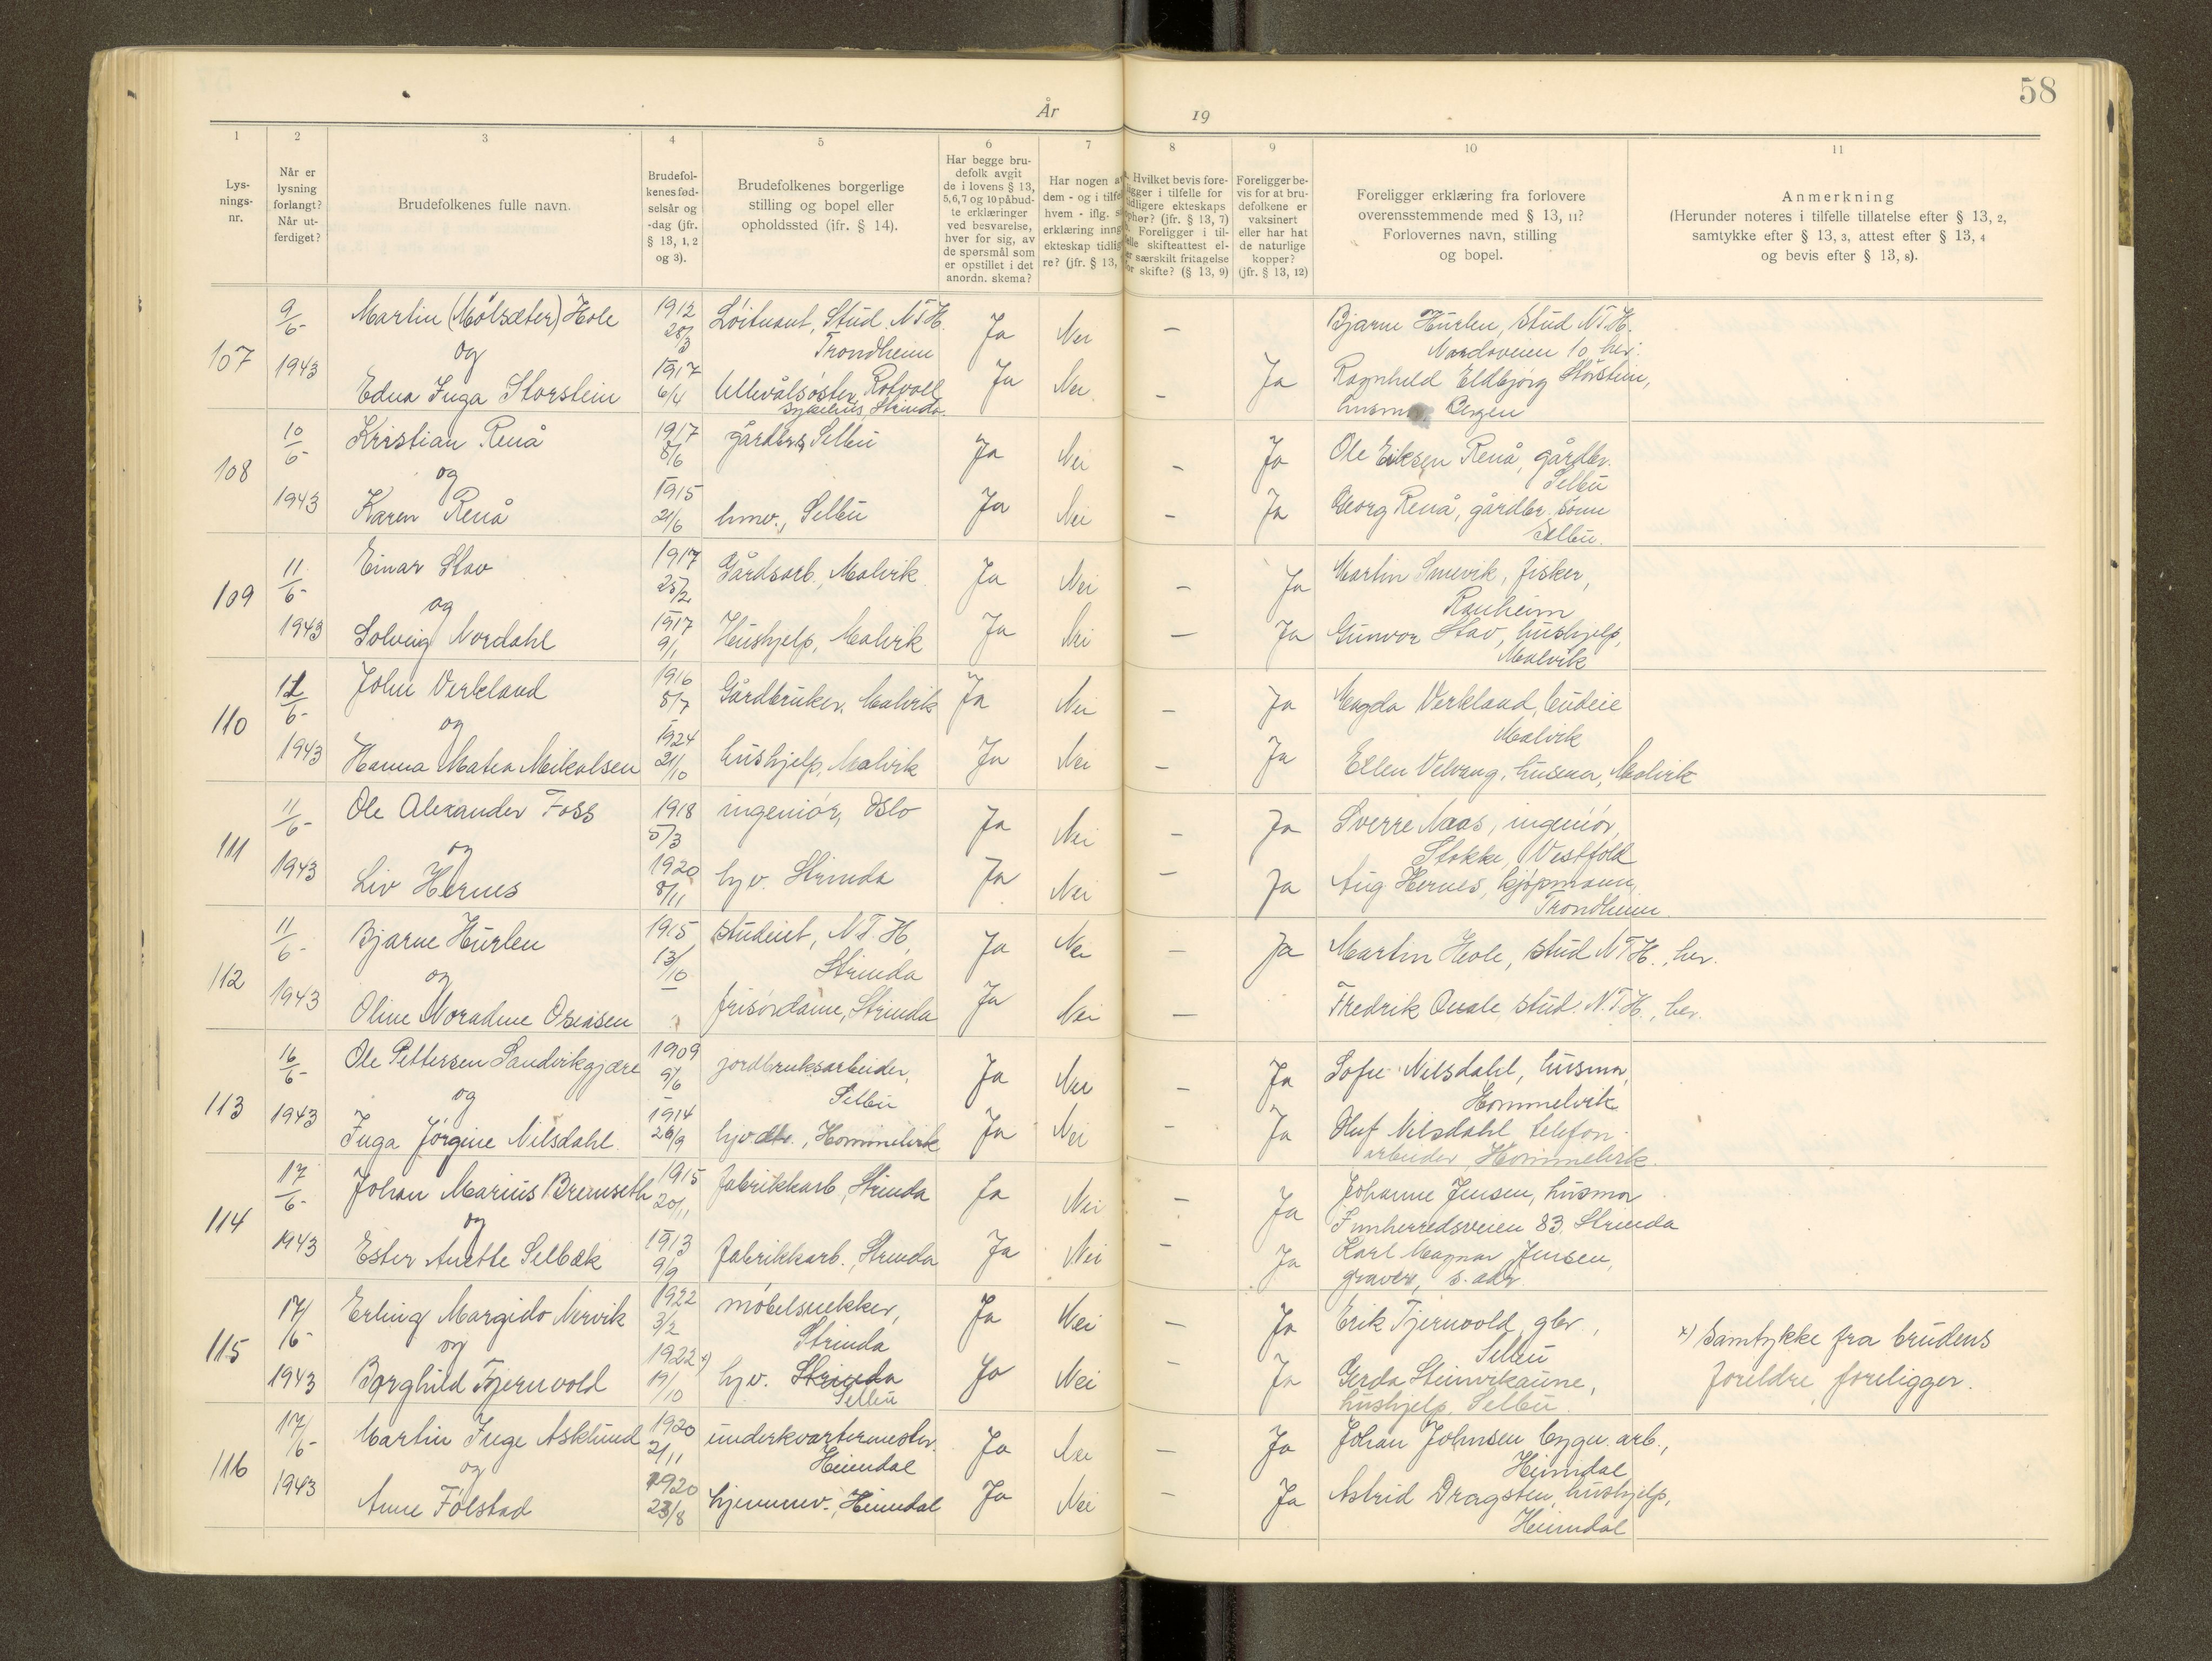 58
År 19
1 2 3 4 5 6 7 8 9 10 11
Lys-
nings-
nr.
Når er
lysning
forlangt?
Når ut-
ferdiget?
Brudefolkenes fulle navn.
Brudefol-
kenes fød-
selsår og
-dag (jfr.
§ 13, 1, 2
og 3).
Brudefolkenes borgerlige
stilling og bopel eller
opholdssted (ifr. § 14).
Har begge bru-
defolk avgit
de i lovens § 13,
5, 6, 7 og 10 påbud-
te erklæringer
ved besvarelse,
hver for sig, av
de spørsmål som
er opstillet i det
anordn. skema?
Har nogen a
dem - og i tilfe
hvem - iflg. s
erklæring inng
ekteskap tidlig
re? (jfr. § 13,
Hvilket bevis fore-
ligger i tilfelle for
tidligere ekteskaps
ophør? (jfr. § 13, 7)
Foreligger i til-
felle skifteattest el-
er særskilt fritagelse
for skifte? (§ 13, 9)
Foreligger be-
vis for at bru-
defolkene er
vaksinert
eller har hat
de naturlige
kopper?
(jfr. § 13, 12)
Foreligger erklæring fra forlovere
overensstemmende med § 13, 11?
Forlovernes navn, stilling
og bopel.
Anmerkning
(Herunder noteres i tilfelle tillatelse efter § 13, 2,
samtykke efter § 13, 3, attest efter § 13, 4
og bevis efter § 13, 8).
107 9/6- 1943
Martin (Mølsæter) Hole 1912 28/3 Løitnant, Stud. N.T.H. Trondheim Ja Nei – Bjarne Hurlen, stud N.T.H.
Nardoveien 10 her.
og
Edna Inga Storstein 1917 6/4 Ullevålsøster, Rotvoll sykehus, Strinda Ja Nei – Ja Ragnhild Eldbjørg Storstein,
husmor Bergen
108 10/6- 1943
Kristian Renå 1917 8/6 gårdbr., Selbu Ja Nei – Ja Ole Eriksen Renå, gårdbr.
Selbu
og
Karen Renå 1915 21/6 hmv., Selbu Ja Nei – Ja Georg Renå, gårdbr. sønn
Selbu.
109 11/6- 1943
Einar Stav 1917 25/2 Gårdsarb., Malvik Ja Nei – Ja Martin Smevik, fisker,
Ranheim
og
Solveig Nordahl 1917 9/1 Hushjelp, Malvik Ja Nei – Ja Gunvor Stav, hushjelp,
Malvik
110 11/6- 1943
John Verkland 1916 8/7 Gårdbruker, Malvik Ja Nei – Ja Magda Verkland, budeie
Malvik
og
Hanna Matea Mikalsen 1924 21/10 hushjelp, Malvik Ja Nei – Ja Ellen Velvang, husmor, Malvik
111 11/6- 1943
Ole Alexander Foss 1918 5/3 ingeniør, Oslo Ja Nei – Ja Sverre Naas, ingeniør,
Stokke, Vestfold
og
Liv Hernes 1920 8/11 hjv. Strinda Ja Nei – Ja Aug Hernes, kjøpmann,
Trondheim.
112 11/6- 1943
Bjarne Hurlen 1915 13/10 student, N.T.H, Strinda Ja Nei – Ja Martin Hole, stud N.T.H., her.
og
Oline Noradine Oseasen frisørdame, Strinda Ja Nei – Fredrik Quale stud. N.T.H., her.
113 16/6- 1943
Ole Pettersen Sandvikgjære 1909 9/6 jordbruksarbeider, Selbu Ja Nei – Ja Sofie Nilsdahl, husmor,
Hommelvik
og
Inga Jørgine Nilsdahl. 1914 26/9 hjv., Hommelvik Ja Nei – Ja Oluf Nilsdahl telefon-
arbeider, Hommelvik.
114 17/6- 1943
Johan Marius Bremseth 1915 20/11 fabrikkarb, Strinda Ja Nei – Ja Johanne Jensen, husmor
Innherredsveien 83. Strinda
og
Ester Anette Selbæk 1913 9/9 fabrikkarb., Strinda Ja Nei – Ja Karl Magnar Jensen,
graver, s. adr.
115 17/6- 1943
Erling Margido Nervik 1922 3/2 møbelsnekker, Strinda Ja Nei – Ja Erik Tjernvold, gbr.,
Selbu
x) Samtykke fra brudens
foreldre foreligger.
og
Borghild Tjernvold 1922 x) 19/10 hjv. Strinda Selbu Ja Nei – Ja Gerda Steinvikaune,
hushjelp, Selbu.
116 17/6- 1943
Martin Inge Asklund 1920 21/11 underkvartermester. Heimdal Ja Nei – Ja Johan Johnsen bygn. arb.,
Heimdal
og
Anne Følstad 1920 23/8 hjemmev., Heimdal Ja Nei – Ja Astrid Dragsten, hushjelp,
Heimdal